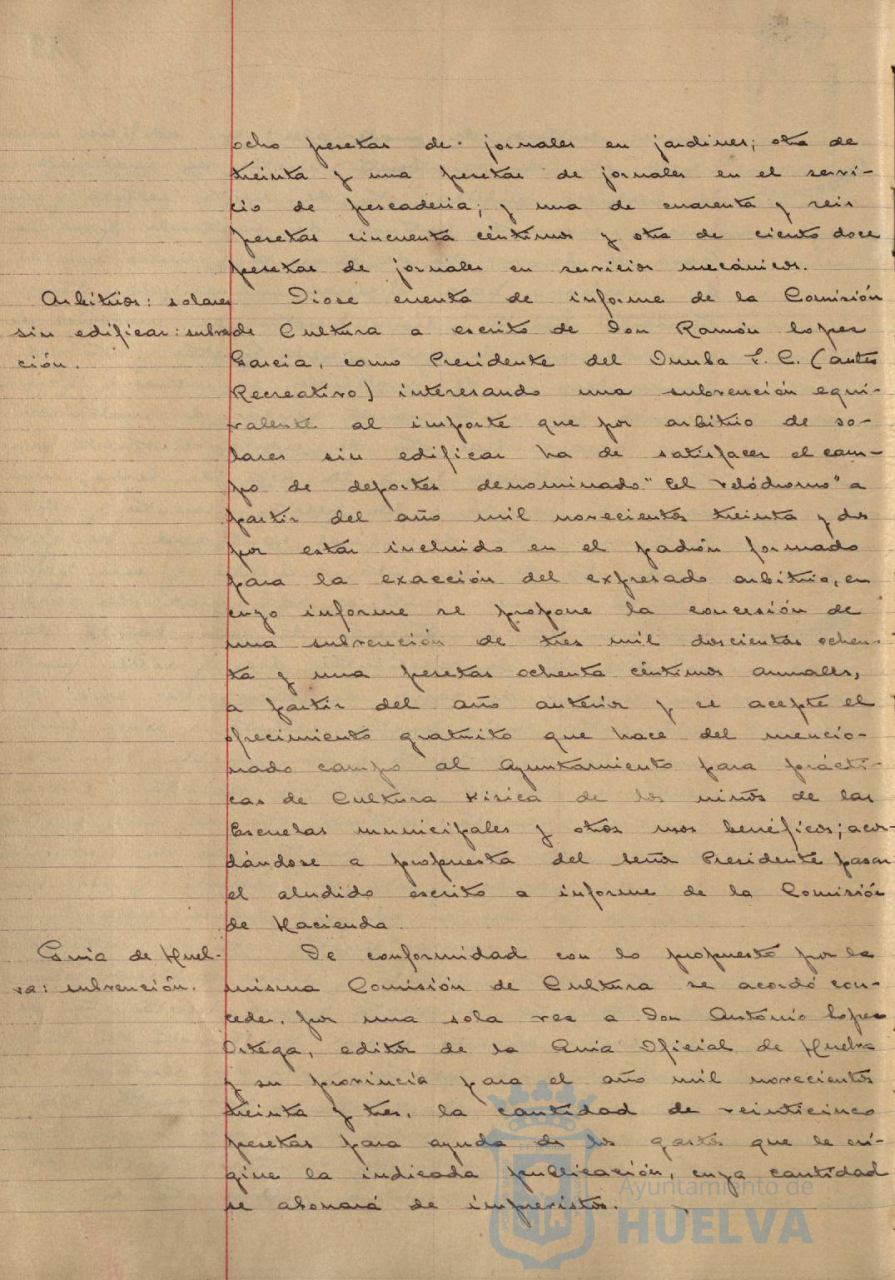 ocho pesetas de jornales en jardines; otra de
treinta y una pesetas de jornales en el servi-
cio de pescaderia; y una de cuarenta y seis
pesetas cincuenta céntimos y otra de ciento doce
pesetas de jornales en servicios mecánicos.
Arbitrios: solares
sin edificar: subven
ción.
Diose cuenta de informe de la Comisión
de Cultura a escrito de Don Ramón López
Garcia, como Presidente del Onuba F. C. (antes
Recreativo) interesando una subvención equi-
valente al importe que por arbitrio de so-
lares sin edificar ha de satisfacer el cam-
po de deportes denominado "El Velódromo" a
partir del año mil novecientos treinta y dos
por estar incluido en el padrón formado
para la exacción del expresado arbitrio, en
cuyo informe se propone la concesión de
una subvención de tres mil doscientas ochen-
ta y una pesetas ochenta céntimos anuales,
a partir del año anterior y se acepte el
ofrecimiento gratuito que hace del mencio-
nado campo al Ayuntamiento para prácti-
cas de Cultura Física de los niños de las
Escuelas municipales y otros usos benéficos; acor-
dándose a propuesta del señor Presidente pasar
el aludido escrito a informe de la Comisión
de Hacienda
Guia de Huel-
va: subvención.
De conformidad con lo propuesto por la
misma Comisión de Cultura se acordó con-
ceder, por una sola vez a Don Antonio López
Ortega, editor de la Guia Oficial de Huelva
y su provincia para el año mil novecientos
treinta y tres, la cantidad de veinticinco
pesetas para ayuda de los gastos que le ori-
gine la indicada publicación, cuya cantidad
se abonará de imprevistos.
Ayuntamiento de
HUELVA